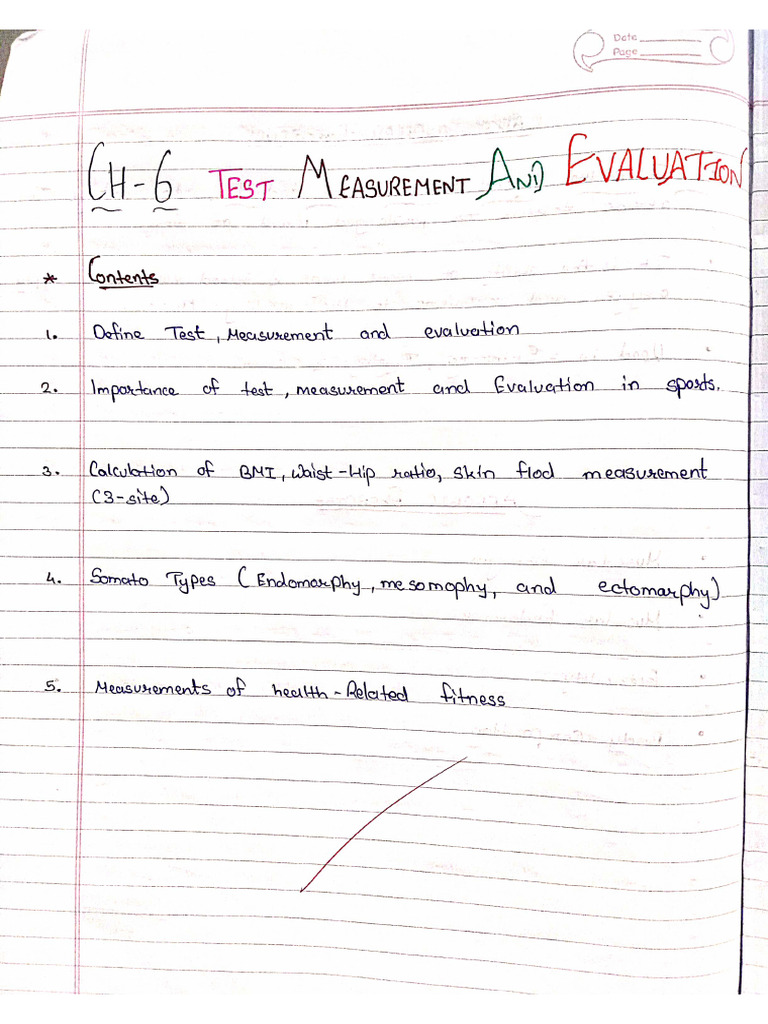 Date
Page
CH-6 TEST MEASUREMENT AND EVALUATION
* Contents
1. Define Test, Measurement and evaluation
2. Importance of test, measurement and Evaluation in sports.
3. Calculation of BMI, Waist-Hip ratio, skin flod measurement
(3-site)
4. Somato Types (Endomorphy, mesomophy, and ectomarphy)
5. Measurements of health-Related fitness